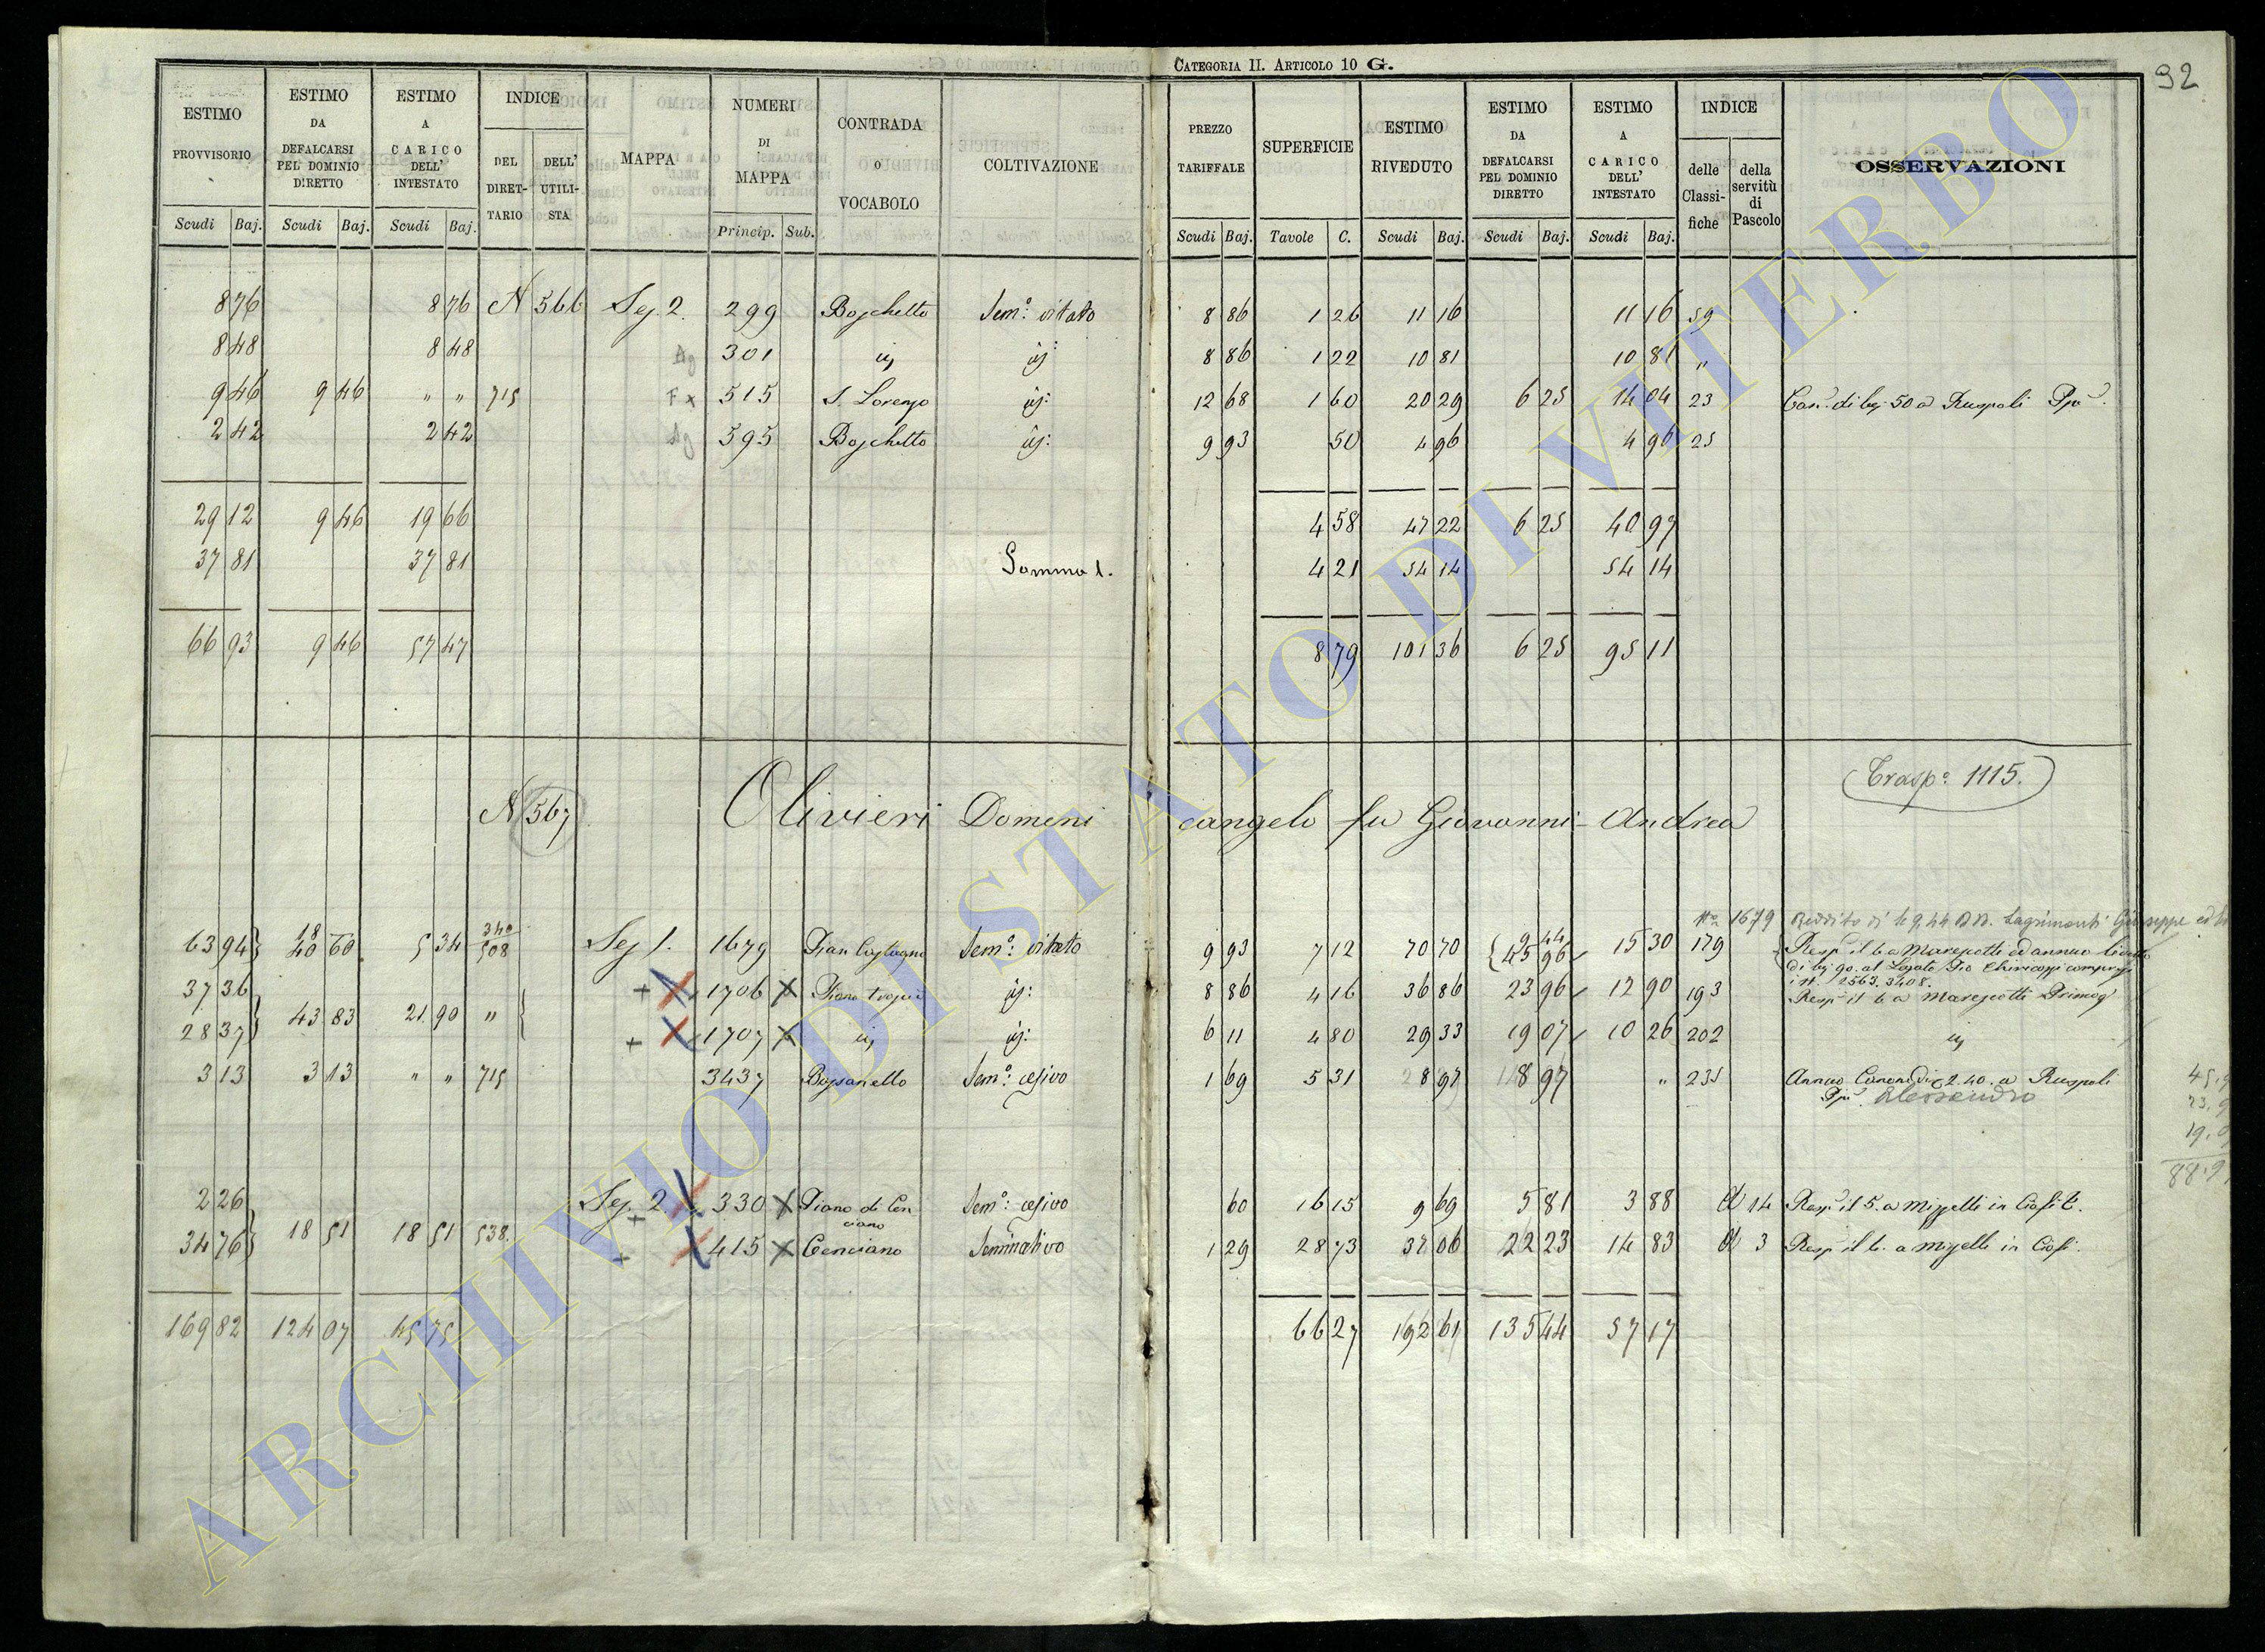 CATEGORIA II. ARTICOLO 10 G.
92
ESTIMO PROVVISORIO Scudi Baj.
ESTIMO DA DEFALCARSI PEL DOMINIO DIRETTO Scudi Baj.
ESTIMO A CARICO DELL' INTESTATO Scudi Baj.
INDICE DEL DIRET-TARIO DELL' UTILI-STA
MAPPA
NUMERI DI MAPPA Princip. Sub.
CONTRADA o VOCABOLO
COLTIVAZIONE
PREZZO TARIFFALE Scudi Baj.
SUPERFICIE Tavole C.
ESTIMO RIVEDUTO Scudi Baj.
ESTIMO DA DEFALCARSI PEL DOMINIO DIRETTO Scudi Baj.
ESTIMO A CARICO DELL' INTESTATO Scudi Baj.
INDICE delle Classi-fiche della servitù di Pascolo
OSSERVAZIONI
8 76 8 76 N 566 Sez. 2. 299 Boschetto Sem.º vitato 8 86 1 26 11 16 11 16 59
8 48 8 48 301 8 86 1 22 10 81 10 81 "
9 46 9 46 " " 715 515 S. Lorenzo 12 68 1 60 20 29 6 25 14 04 23 di bj 50 a Ruspoli
2 42 2 42 595 Boschetto 9 93 50 4 96 4 96 25
29 12 9 46 19 66 4 58 47 22 6 25 40 97
37 81 37 81 Somma 1. 4 21 54 14 54 14
66 93 9 46 57 47 8 79 101 36 6 25 95 11
Trasp.º 1115.
N 567 Olivieri Domenicangelo fu Giovanni Andrea
Nº 1679 Giuseppe ed
63 94 18 40 60 5 34 340 508 Sez 1. 1679 Pian Castagno Sem.º vitato 9 93 7 12 70 70 9 44 45 96 15 30 179 a Marescotti ed annuo
di bj 90. al Legato Pio
2563. 3408.
37 36 + X 1706 X 8 86 4 16 36 86 23 96 12 90 193 a Marescotti
28 37 43 83 21 90 " + X 1707 X 6 11 4 80 29 33 19 07 10 26 202
3 13 3 13 " " 715 3437 Sem.º cesivo 1 69 5 31 8 97 8 97 " 235 Annuo Canone di 2.40. a Ruspoli
Alessandro
2 26 Sez. 2 X 330 X Piano di Cenciano Sem.º cesivo 60 16 15 9 69 5 81 3 88 14
34 76 18 51 18 51 538. + X 415 X Cenciano Seminativo 1 29 28 73 37 06 22 23 14 83 3
169 82 124 07 45 75 66 27 192 61 135 44 57 17
ARCHIVIO DI STATO DI VITERBO